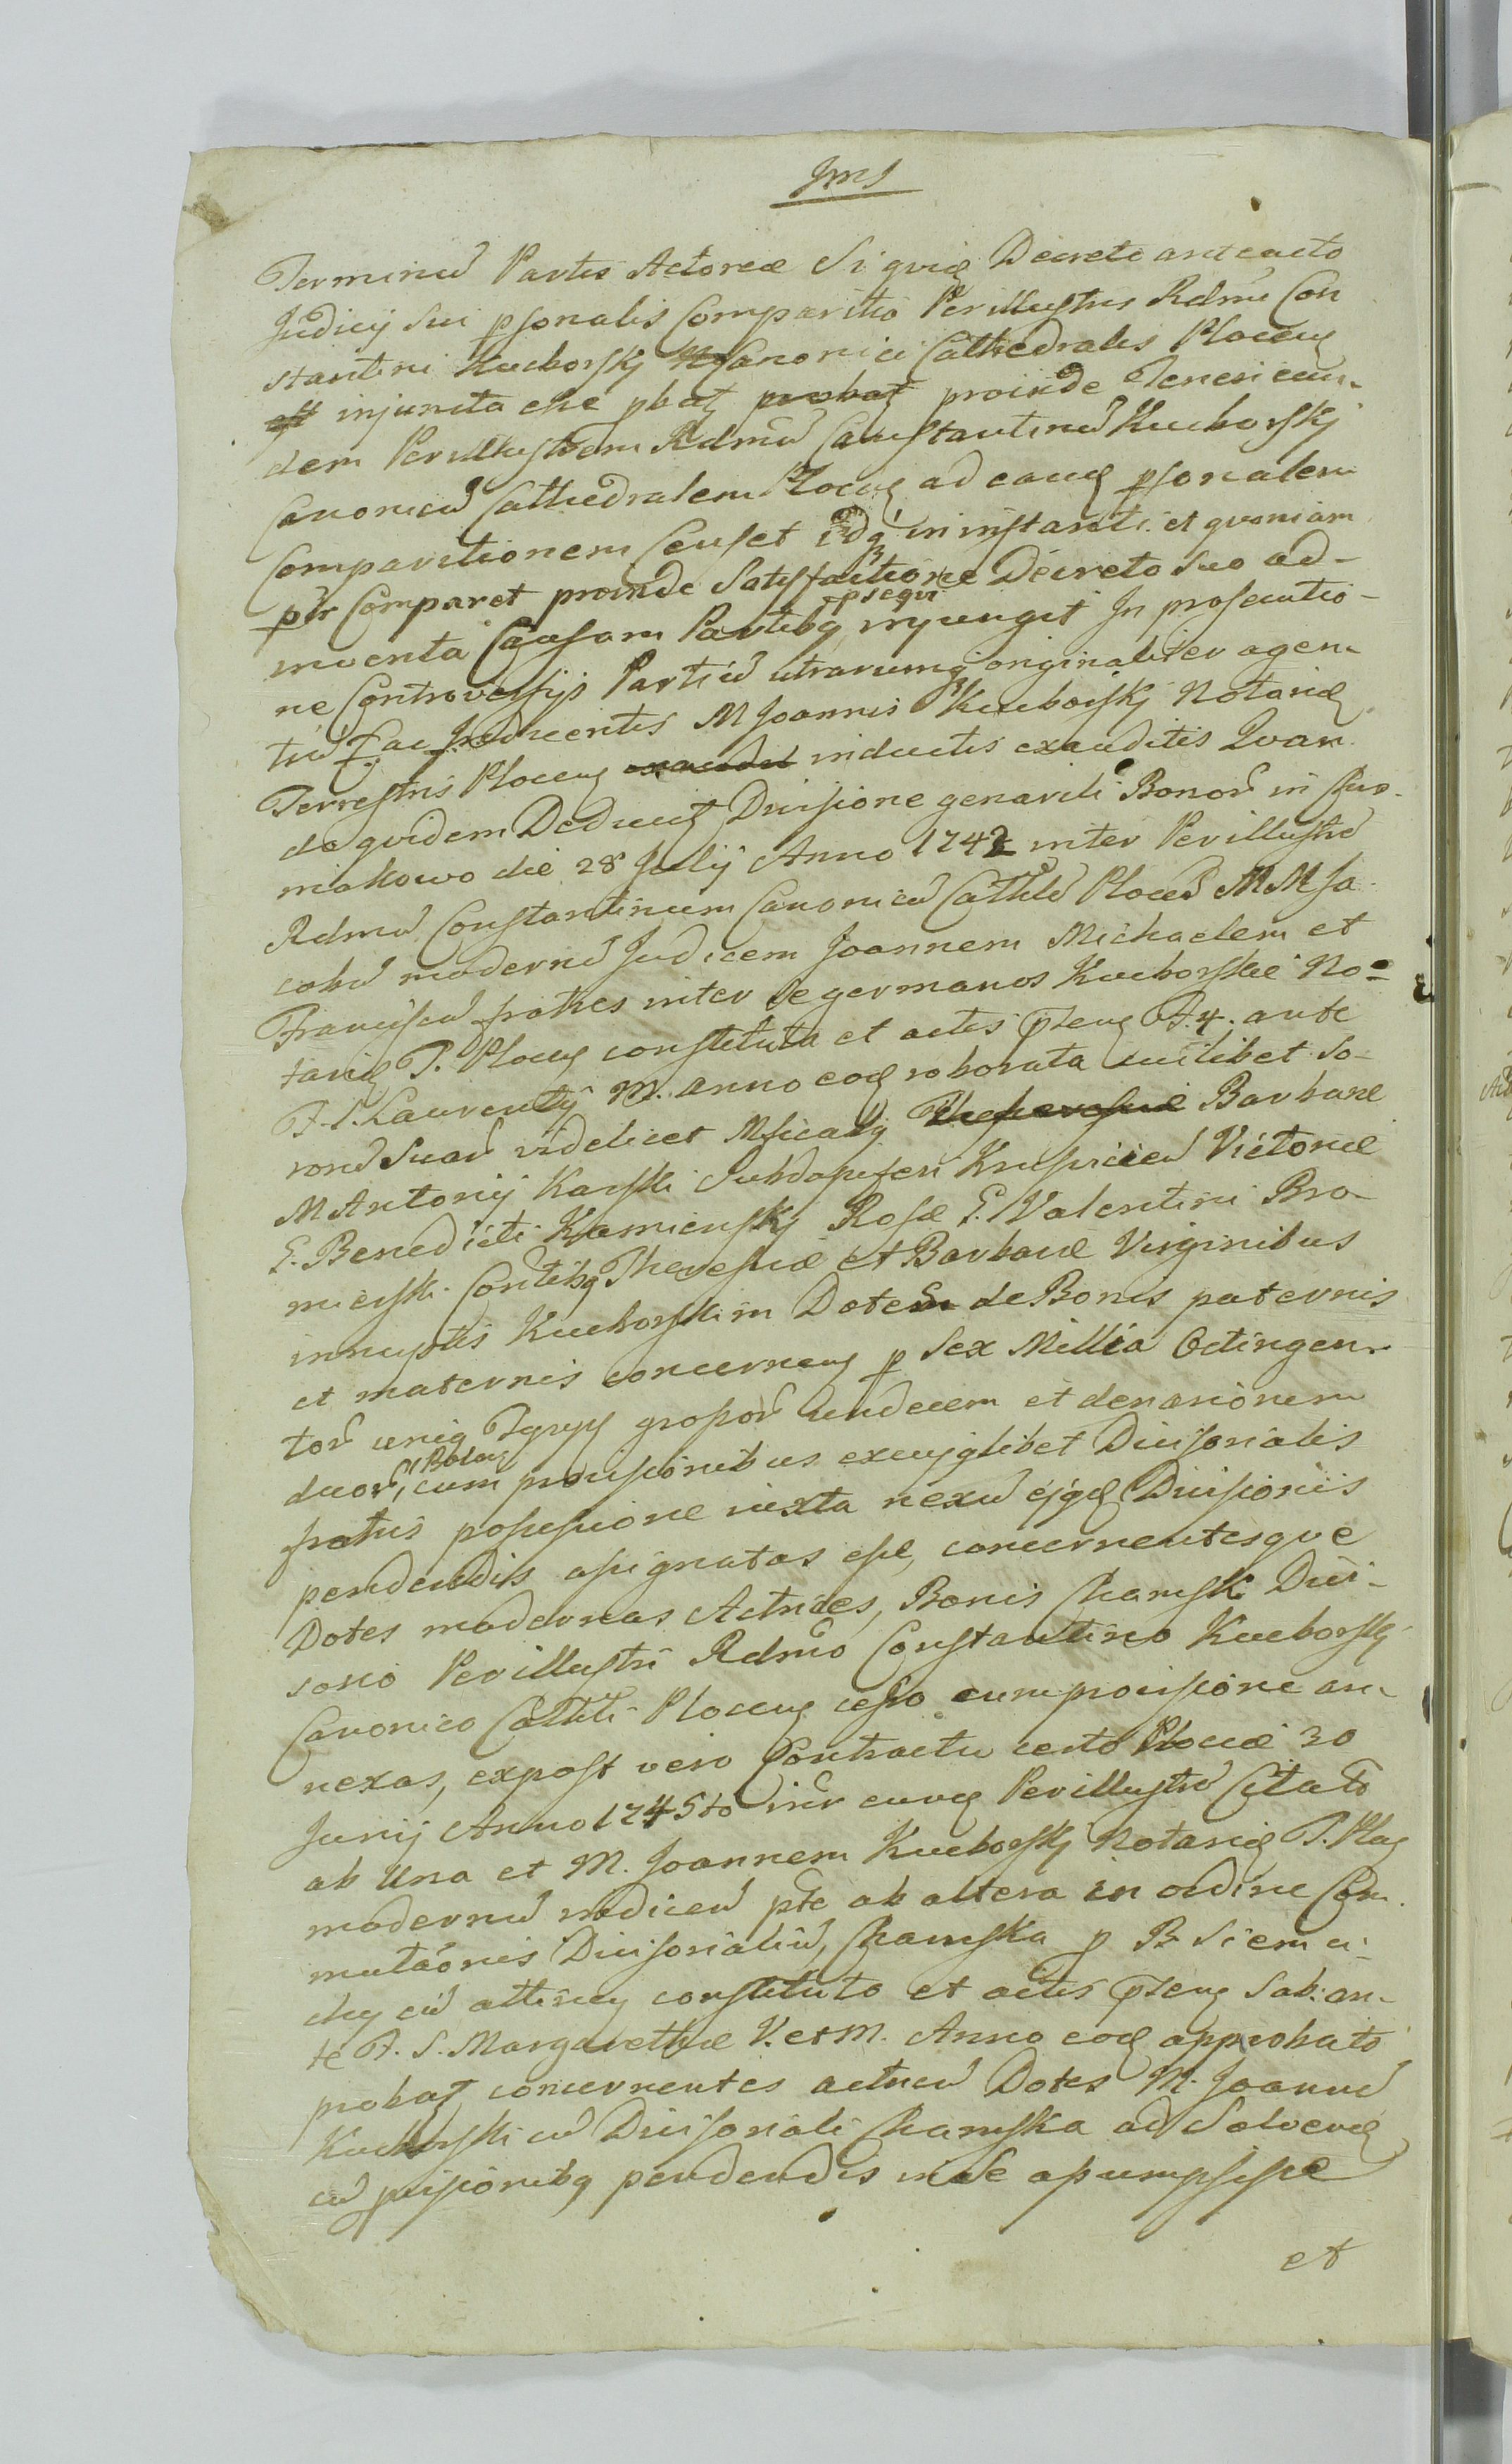 Terminū Partis Actoreæ Siquid Decreto anteacto
Judicij Sui psonalis Comparitio Perillustris Rdmi Con
stantini Kuckorskj Canonici Cathedralis Plocen
est injuncta esse pbat probat proinde Teneri eun
dem Perillustrem Rdmū Constantinū Kuckorskj
Canonicū Cathedralem Plocen ad eand psonalem
Comparitionem Censet idq in instanti et quoniam
ptr Comparet proinde Satisfactione Decreto Suo ad-
inventa Causam Partibq psequi injungit In prosecutio-
ne Controversijs Partiū utrarumq originaliter agen
tiū ac Inducentis M Joannis Kuckorskj Notarii
Terrestris Plocen exaudit inductis exauditis Quan
do quidem Deducit Divisione generali Bonor in
miakowo die 28 Julij Anno 1742 inter Perillustrē
Rdmū Constantinum Canonicū Cathlē Plocē MM Ja-
cobū modernū Judicem Joannem Michaelem et
Franciscū fratres inter se germanos Kuckorskie No-
tariū T. Plocen constituta et actis pten F. 4. ante
F. S. Laurentij M. anno eod roborata cuilibet So-
rorū Suar videlicet Mficab Theresiæ Barbaræ
M Antonij Karski Subdapiferi Victoriæ
G. Benedicti Kamienskj Rosæ G. Valentini Bro-
mierski Contibq Theresiæ et Barbaræ Virginibus
innuptis Kuckorskim Dotem de Bonis paternis
et maternis concernen p Sex Millia Octingen
tor unig grossor undecem et denariorum
duor, Polon cum provisionibus excujqlibet Divisorialis
fratris possessione iuxta nexū ejqd Divisionis
pendendis assignatas esse, concernentesque
Dotes modernas Actrices, Bonis Chamsk Divi-
sorio Perillustri Rdmo Constantino Kuckorskj
Canonico Cathli Plocen cesso cum provisione an
nexas, expost vero Contractu certo Plociæ 30
Junij Anno 1745to inter eund Perillustrē Citatū
ab Una et M. Joannem Kuckorskj Notariū T. Ploc
modernū iudicem pte ab altera in ordine Com
mutaōnis Divisorialiū, Chamska p B Siemia-
cū attinen constituto et actis pten Sab: an-
te F. S. Margarethæ V. et M. Anno eod approbato
probat concernentes actricū Dotes M. Joannē
Kuckorski cū Divisoriali Chamska ad Solvend
cū pvisionibq pendendis in Se assumpsisse
et